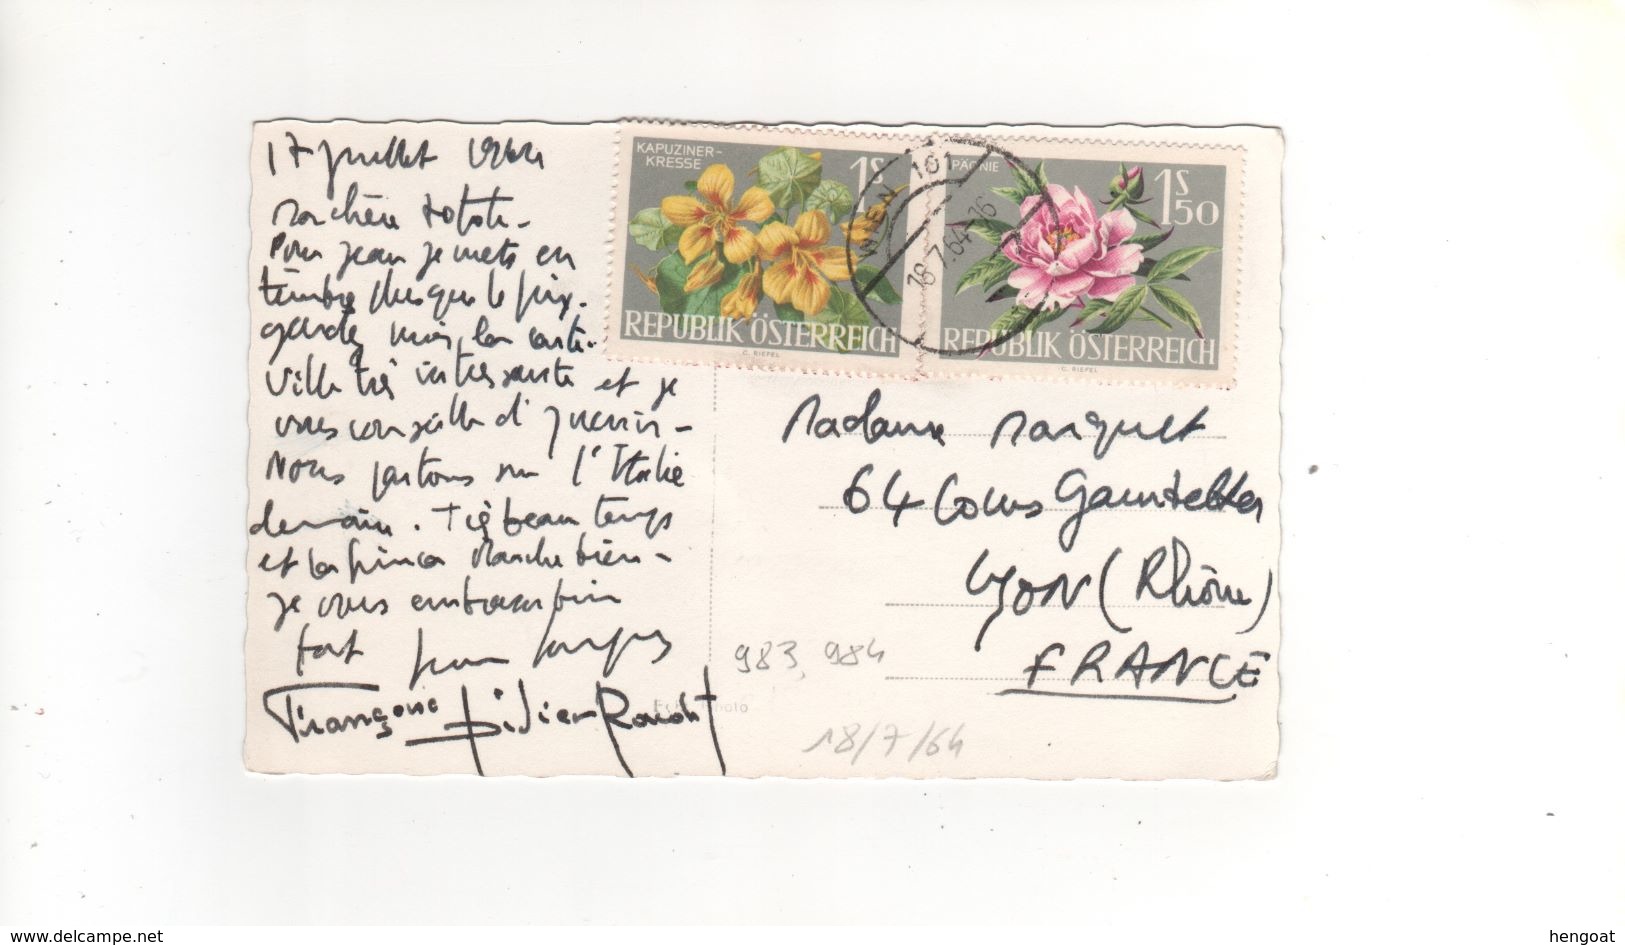 17 juillet 1964
Ma chère
Pour Jean je mets en
timbre plus que le prix.
gardez moi la carte.
Ville très intéressante et je
vous conseille d'y venir -
Nous partons sur l'Italie
demain. Très beau temps
et la simca marche bien -
je vous embrasse bien
fort
Françoise Didier
KAPUZINER-
KRESSE
1S
REPUBLIK ÖSTERREICH
C. RIEPEL
PÄONIE
1S
50
REPUBLIK ÖSTERREICH
C. RIEPEL
WIEN 101
18.7.64-16
Madame Marquet
64 Cours Gambetta
LYON (Rhône)
FRANCE
983, 984
Photo
18/7/64
www.delcampe.net
hengoat